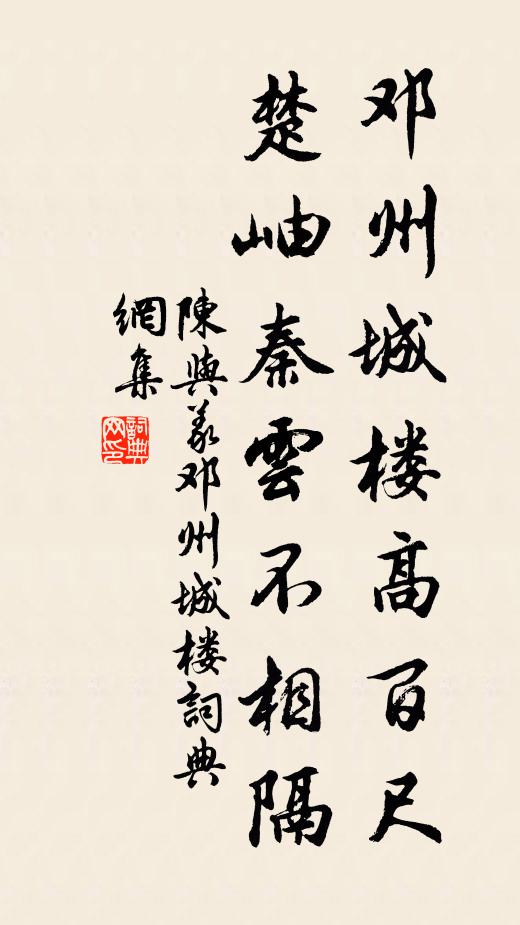 邓州城楼高百尺
楚岫秦雲不相隔
陳與义邓州城楼詞典
網集
詞典
网印